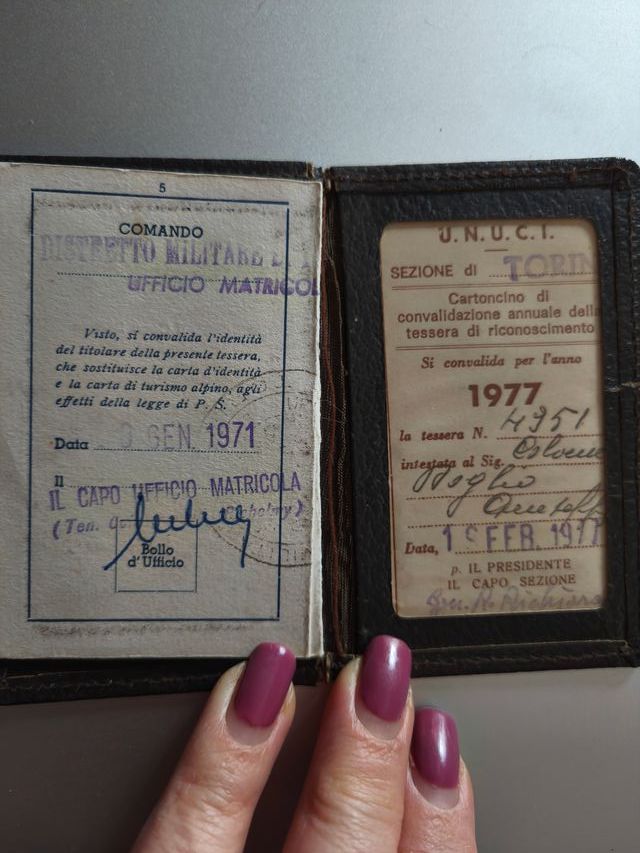 5
COMANDO
DISTRETTO MILITARE DI T
UFFICIO MATRICOL
Visto, si convalida l'identità
del titolare della presente tessera,
che sostituisce la carta d'identità
e la carta di turismo alpino, agli
effetti della legge di P. S.
Data GEN. 1971
Il
IL CAPO UFFICIO MATRICOLA
(Ten.
Bollo
d'Ufficio
U.N.U.C.I.
SEZIONE di TORIN
Cartoncino di
convalidazione annuale della
tessera di riconoscimento
Si convalida per l'anno
1977
la tessera N. 4951
intestata al Sig.
Data, FEB. 1977
p. IL PRESIDENTE
IL CAPO SEZIONE